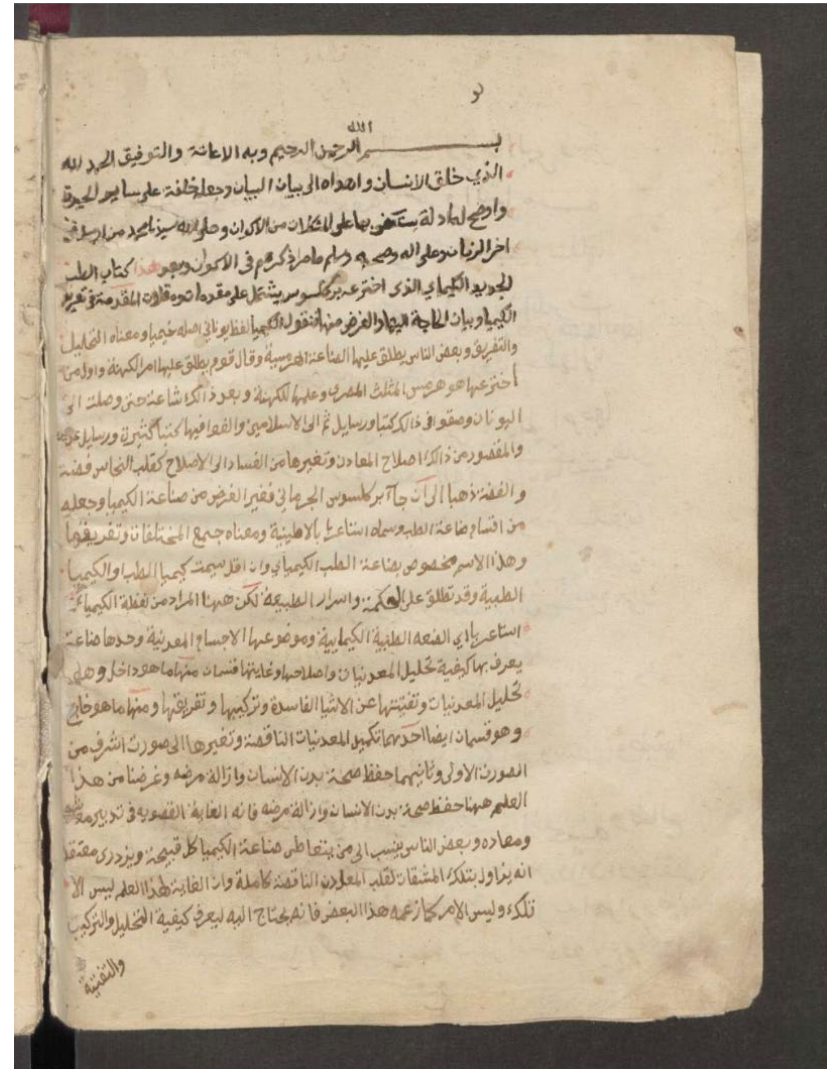 بسم الله الرحمن الرحيم وبه الاعانة والتوفيق الحمد لله
الذي خلق الانسان واهداه الى بيان البيان وجعله خلفة على ساير الحيوة
واوضح له ادلة على المشكلات من الاكوان وصلى الله سيدنا محمد من ارسله في
اخر الزمان وعلى اله وصحبه وسلم في الاكوان وبعد هذا كتاب الطب
الجديد الكيماي الذي اخترعه بركلسوس يشتمل على مقدمة ومقلات المقدمة في تعريف
الكيميا وبيان الحاجة اليها والغرض منها فنقول الكيميا لفظ يوناني اصله خيميا ومعناه التحليل
والتفريق وبعض الناس يطلق عليها الصناعة الهرمسية وقال قوم يطلق عليها امر الكهنة واول من
اخترعها هو هرمس المثلث المصري وعلمها للكهنة وبعد ذالك شاعة حتى وصلت الى
اليونان وصنفوا في ذالك كتبا ورسايل ثم الى الاسلاميين والفوا فيها كتبا كثيرة ورسايل
والمقصود من ذالك اصلاح المعادن وتغيرها من الفساد الى الاصلاح كقلب النحاس فضة
والفضة ذهبا الى ان جاآ بركلسوس الجرماني فغير الغرض من صناعة الكيميا وجعله
من اقسام صناعة الطب وسماه اسباغريا بالاطينية ومعناه جمع المختلفات وتفريقها
وهذا الاسم مخصوص بصناعة الطب الكيمياي وان اقل سيمت كيميا الطب او الكيميا
الطبية وقد تطلق على الحكمة واسرار الطبيعة لكن ههنا المراد من لفظة الكيمياء
اي الصنعه الطبية الكيمايية وموضوعها الاجسام المعدنية وحدها صناعة
يعرف بها كيفية تحليل المعدنيات واصلاحها وغايتها قسمان منها ما هو داخل وهي
تحليل المعدنيات وتنقيتها عن الاشيا الفاسدة وتركيبها وتفريقها ومنها ما هو خارج
وهو قسمان ايضا احدهما تكميل المعدنيات الناقصة وتغيرها الى صورت اشرف من
الصورت الاولى وثانيهما حفظ صحة بدن الانسان وازالة مرضه وغرضنا من هذا
العلم ههنا حفظ صحة بدن الانسان وازالة مرضه فانه الغاية القصويه في تدبير
ومعاده وبعض الناس ينسب الى من يتعاطى صناعة الكيميا كل قبيحة ويزدرى معتقد
انه يزاول بتلك المشقات لقلب المعادن الناقصة كاملة وان الغاية لهذا العلم ليس الا
تلك وليس الامر كما زعمه هذا البعض فانه يحتاج اليه ليعرف كيفية التحليل والتركيب
والتنقية